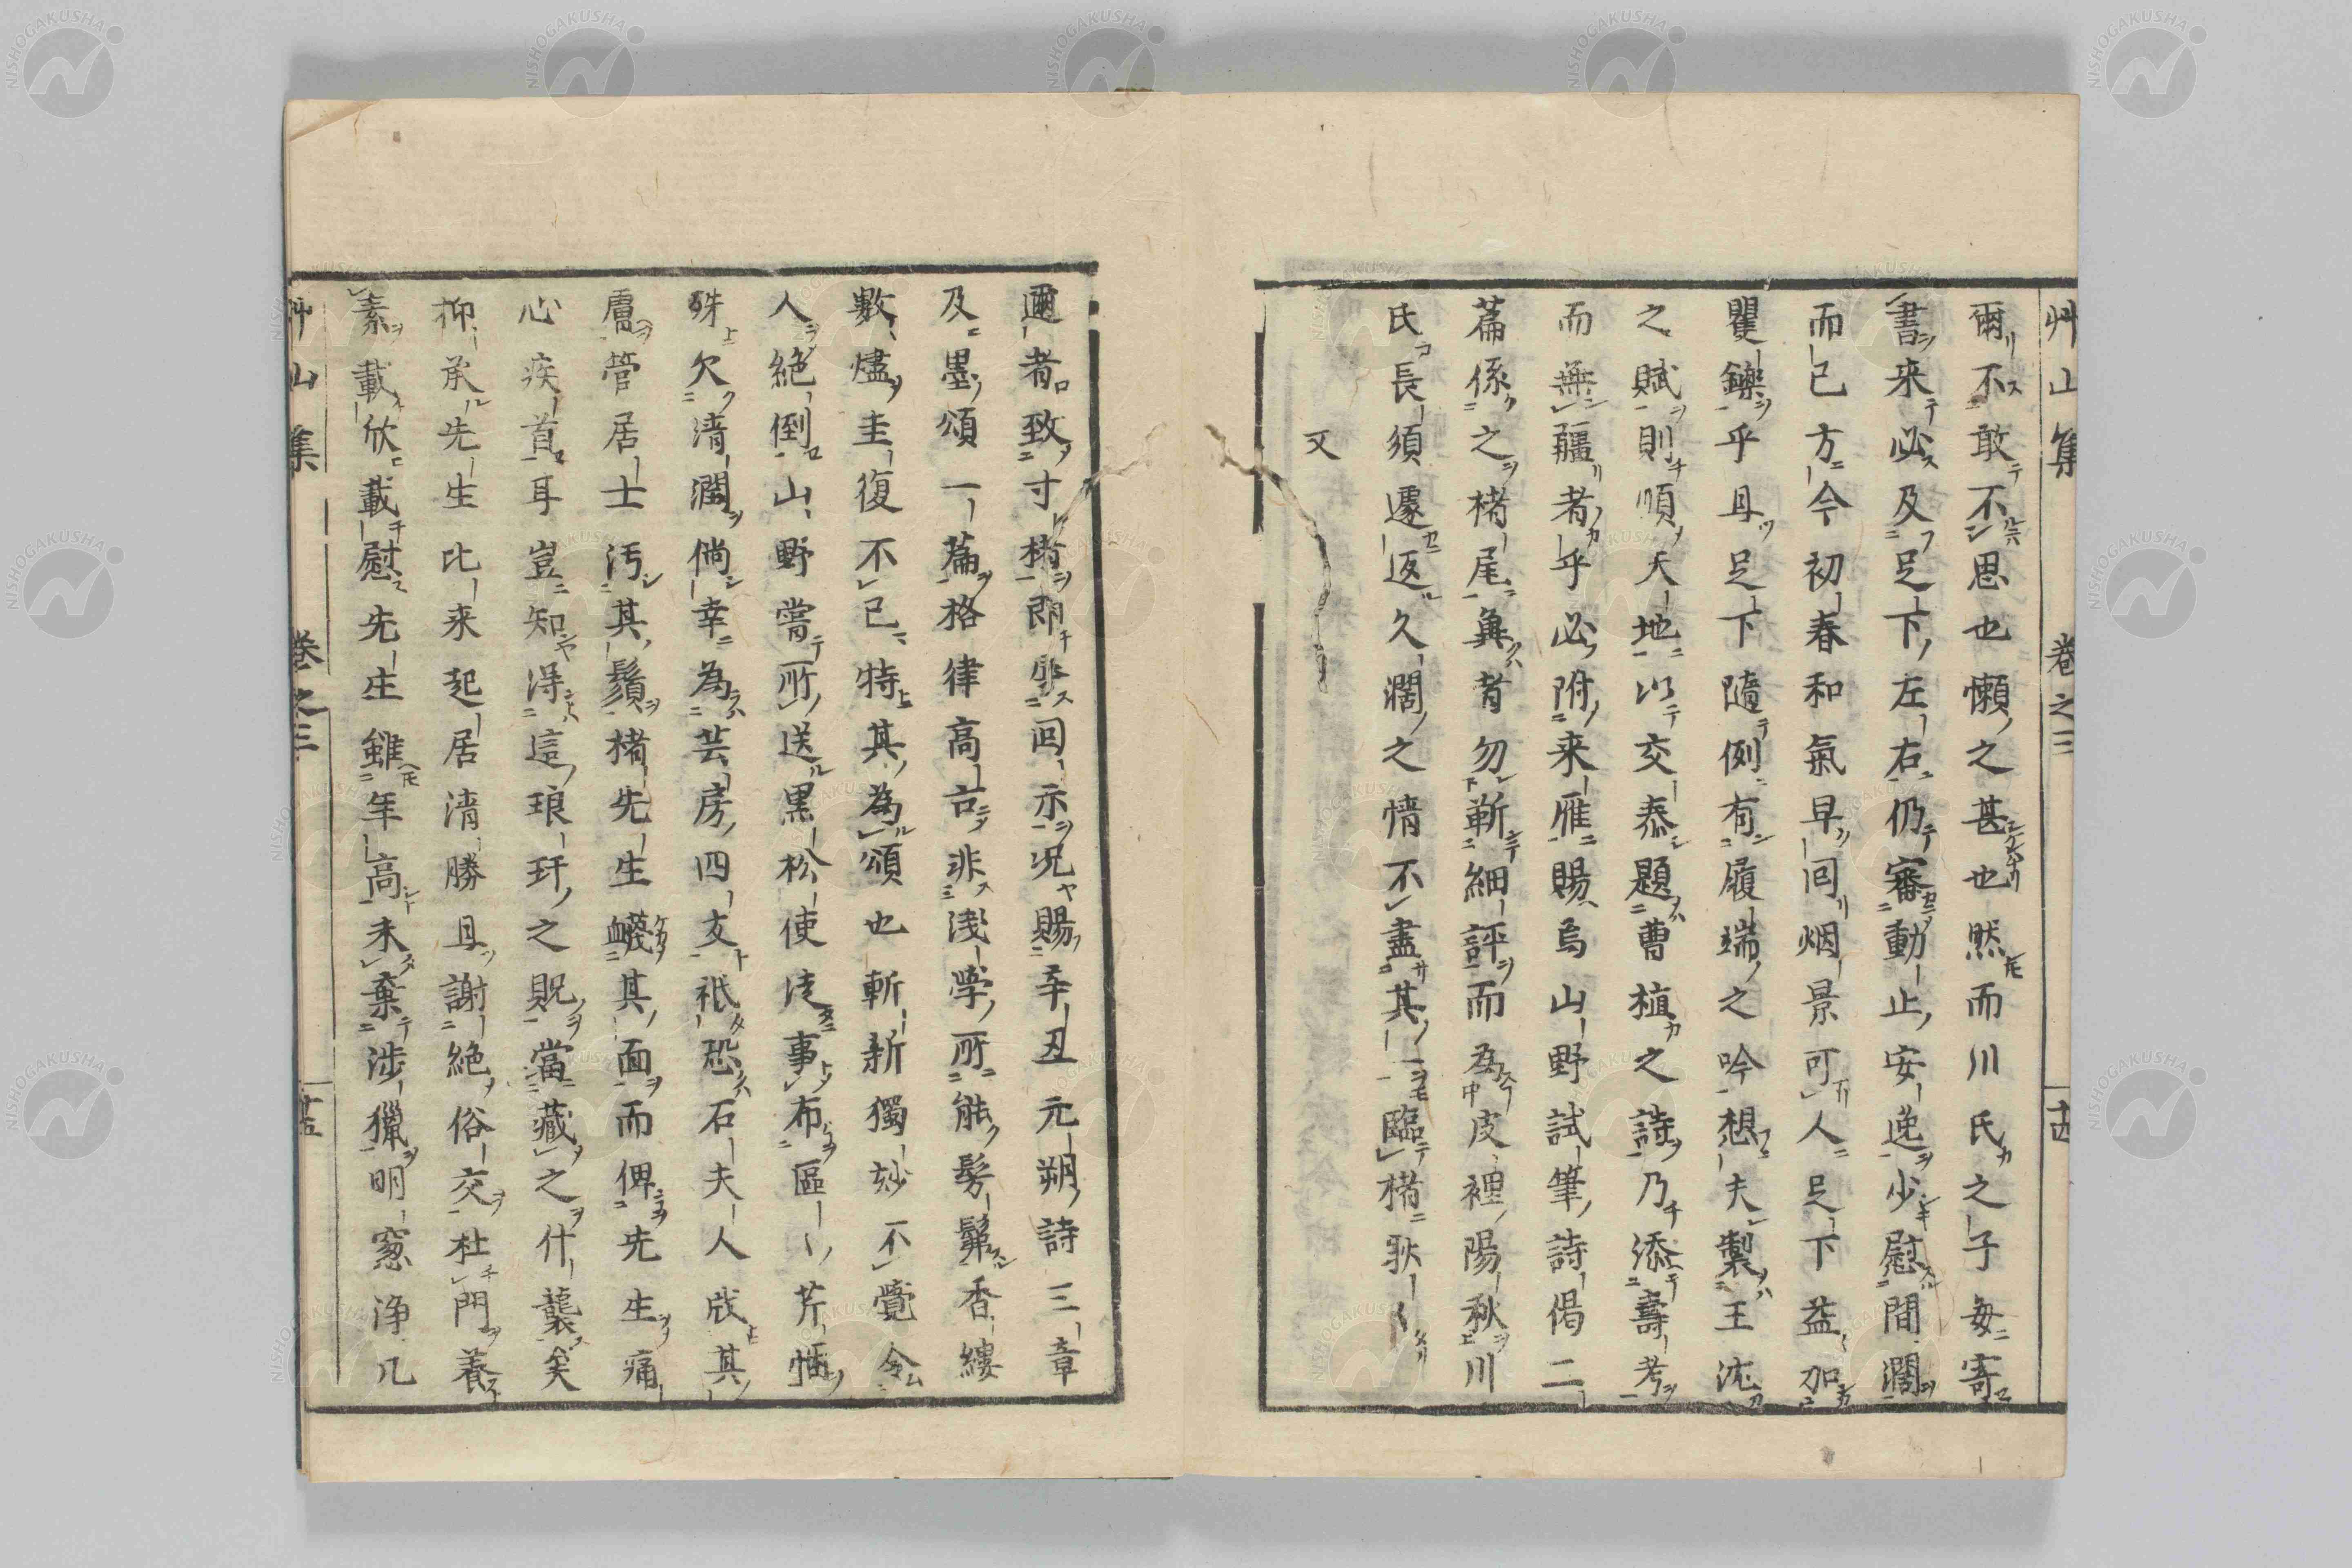 艸山集 卷之三 十四
爾不敢不思也懶之甚也然而川氏之子每寄
書来必及足下左右仍審動止安逸少慰間濶
而已方今初春和氣早回烟景可人足下益加
矍鑠乎且足下隨例有履端之吟想夫製王沈
之賦則順天地以交泰題曹植之詩乃添壽考
而無疆者乎必附来雁賜焉山野試筆詩偈二
篇係之楮尾覓者勿靳細評而為皮裡陽秋川
氏長須遽返久濶之情不盡其一臨楮耿〻
又
邇者致寸楮即蒙回示况賜辛丑元朔詩三章
及墨頌一篇格律高古非淺学所能髣髴香縷
數燼圭復不已特其為頌也斬新獨妙不覺令
人絶倒山野嘗所送黒松使徒事布區〻芹悃
殊欠清潤倘幸為芸房四友祇恐石夫人戕其
膚管居士汚其鬚楮先生衊其面而俾先生痛
心疾首耳豈知得這琅玕之貺當藏之什襲矣
抑承先生比来起居清勝且謝絶俗交杜門養
素載欣載慰先生雖年高未棄涉獵明窓浄几
艸山集 卷之三 十五